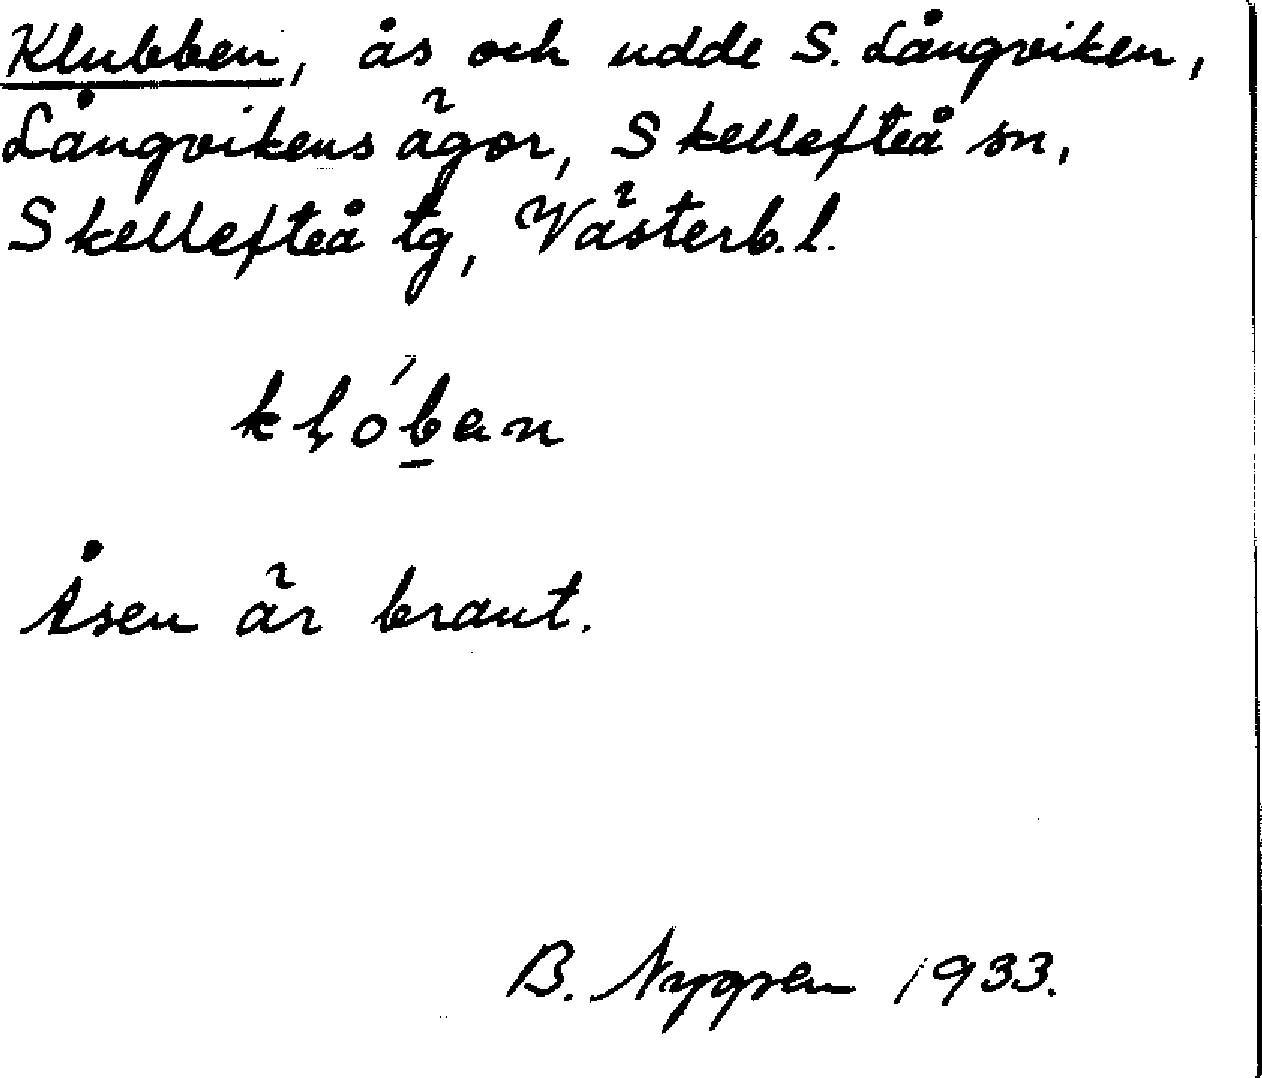 Klubben, ås och udde S. Långviken,
Långvikens ägor, Skellefteå sn,
Skellefteå tg, Västerb. l.
kḷób̠en
Åsen är brant.
B. Nygren 1933.